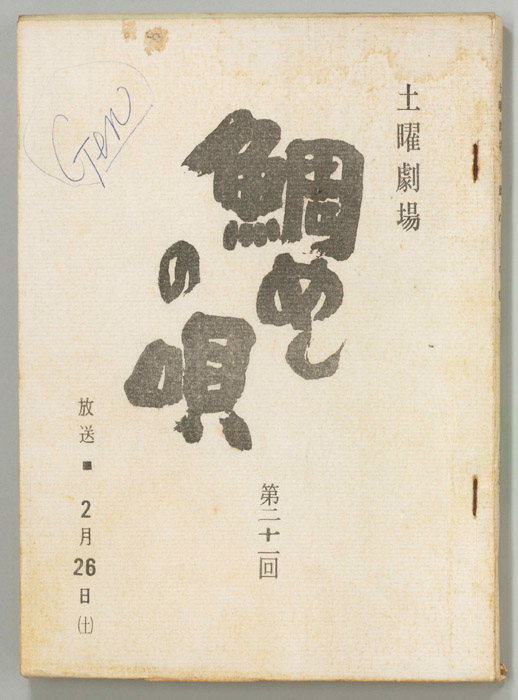 土曜劇場
鯛めし
の唄
第二十一回
放送■2月26日(土)
Gen